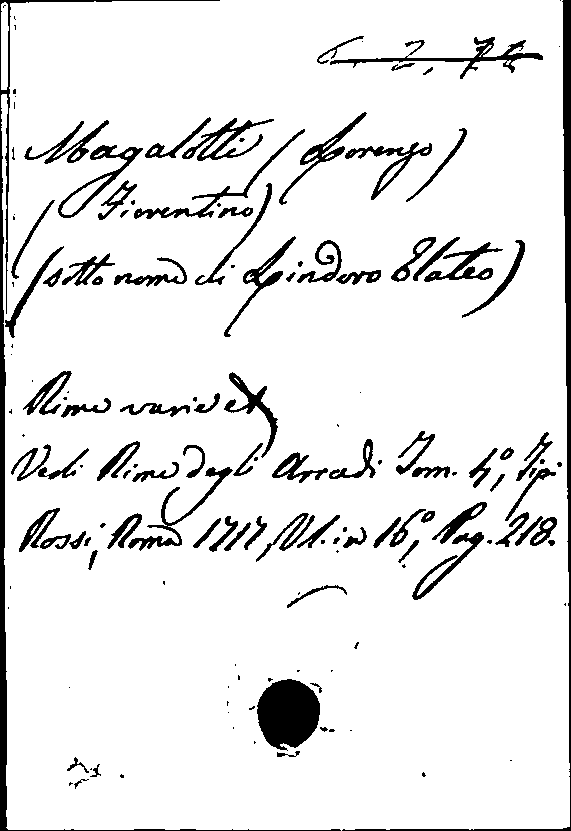 Magalotti (Lorenzo)
(Fiorentino)
(sotto nome di Lindoro Elateo)
Rime varie
Vedi Rime degli Arcadi Tom. 4º, Tipi
Rossi, Roma 1717, Vl. in 16º, Pag. 218.